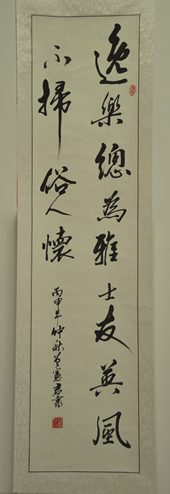 逸樂總為雅士友英風
不掃俗人懷
丙申年仲秋